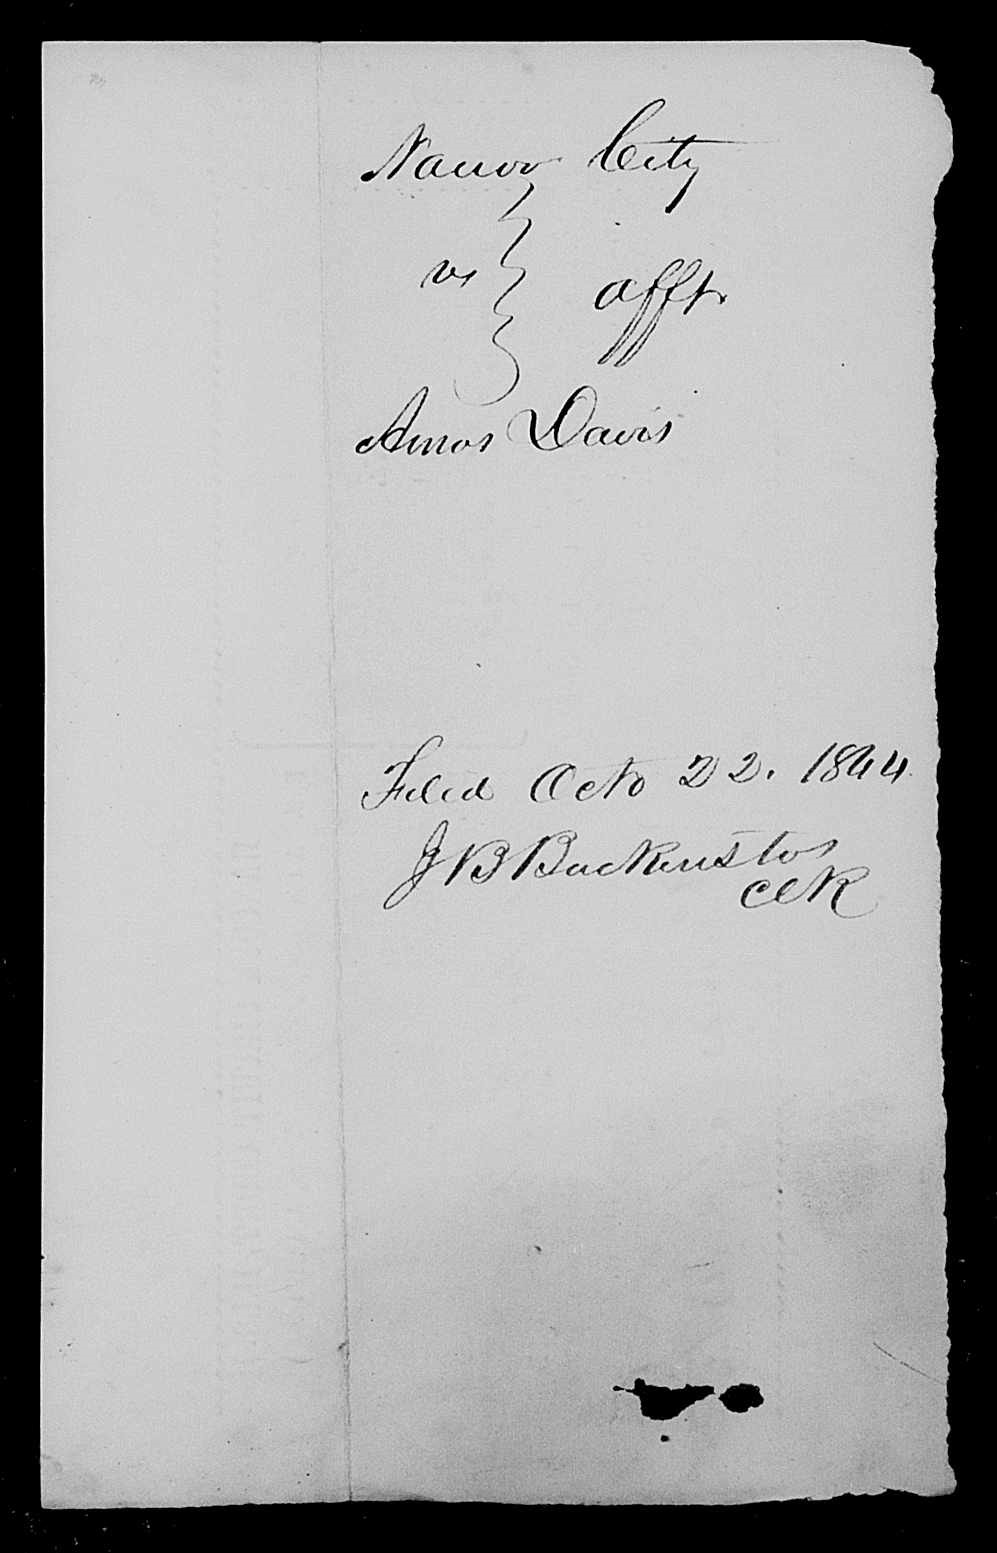 Nauvoo City
vs } afft.
Amos Davis
Filed Octo 22. 1844.
J B Backenstos
Clk